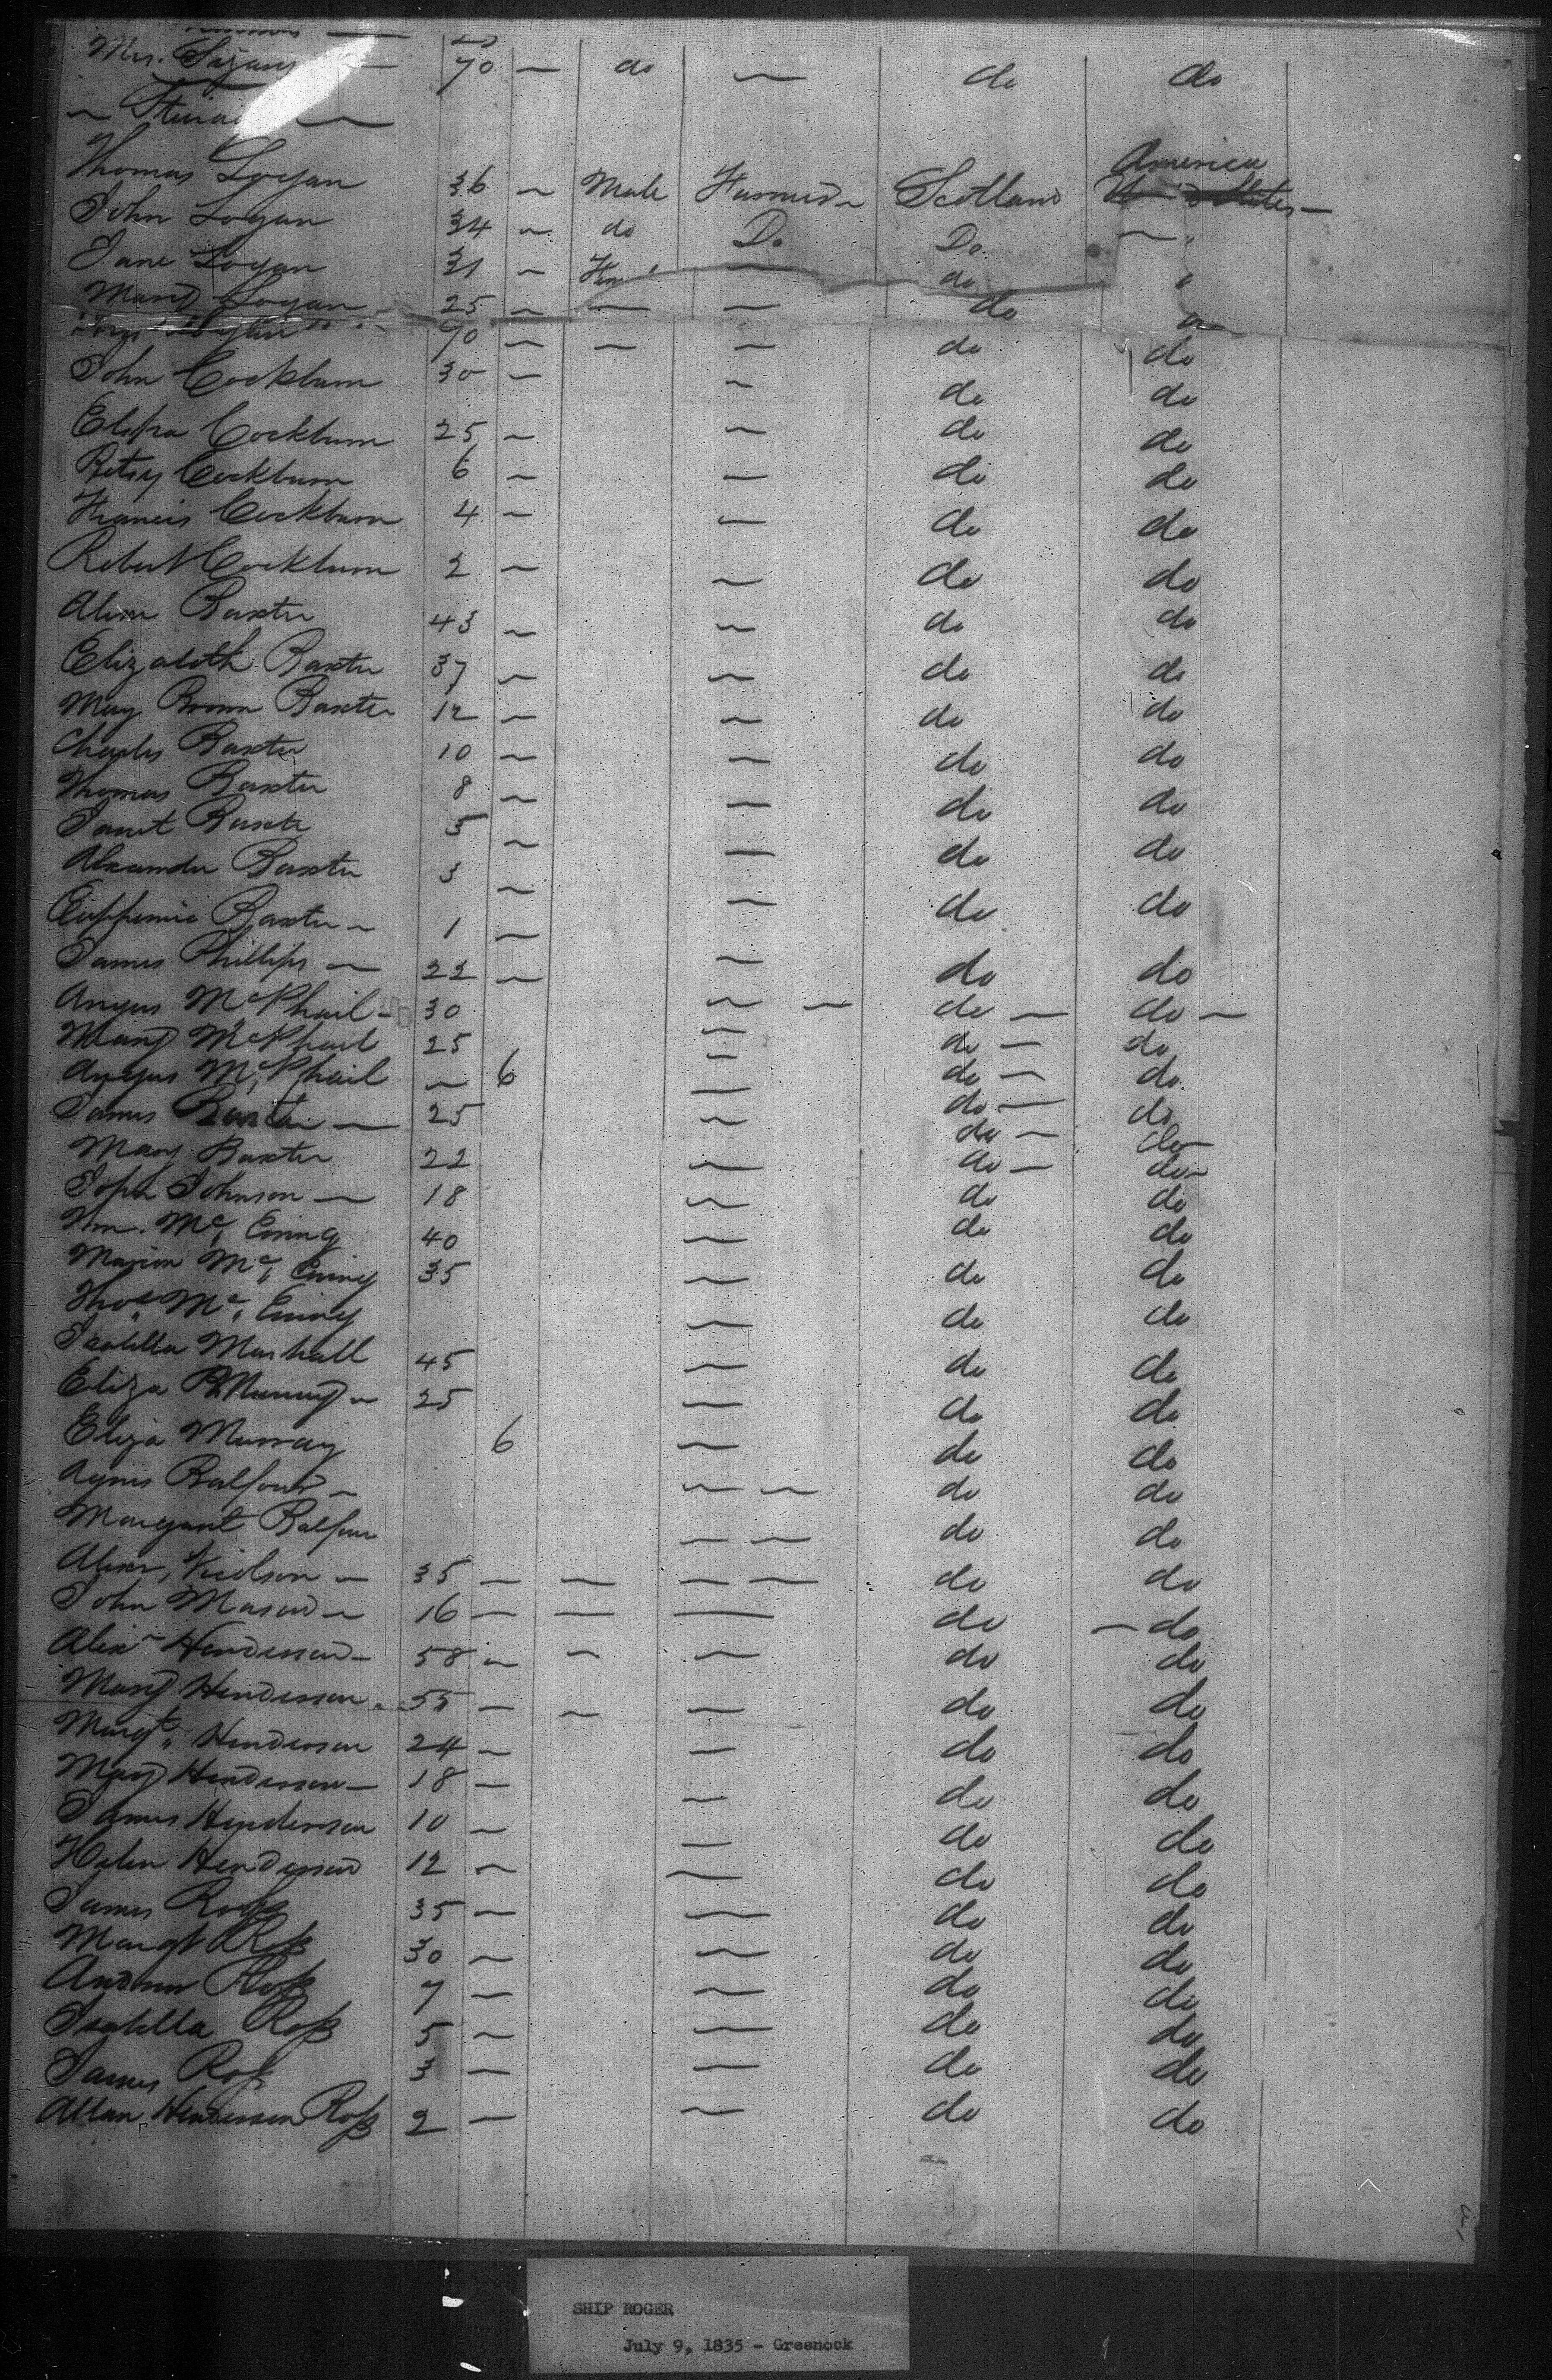 Mrs. 70 — do — do do
Thomas Logan 36 — Male Farmer Scotland America
John Logan 34 — do Do Do — "
Jane Logan 31 — Fem — do "
Mary Logan 25 — — — do
70 — — — do do
John Cockburn 30 — — do do
Cockburn 25 — — do do
Betsy Cockburn 6 — — do do
Francis Cockburn 4 — — do do
Robert Cockburn 2 — — do do
Alexr Baxter 43 — — do do
Elizabeth Baxter 37 — — do do
May Brown Baxter 12 — — do do
Charles Baxter 10 — — do do
Thomas Baxter 8 — — do do
Janet Baxter 5 — — do do
Alexander Baxter 3 — — do do
Eupphemia Baxter — 1 —
James Phillips — 22 — — do do
Angus McPhail — 30 — — do — do —
Mary McPhail 25 — do — do
Angus McPhail — 6 — do — do
James Baxter — 25 — do — do
Mary Baxter 22 — do — do
Johnson — 18 — do do
Wm. Mc, Ewing 40 — do do
Marion Mc, Ewing 35 — do do
Thos Mc, Ewing — do do
Isabella Marshall 45 — do do
Eliza Murray — 25 — do do
Eliza Murray 6 — do do
Agnes Balfour — — — do do
Margaret Balfour — — do do
Alexr, Neilson — 35 — — — — do do
John Mason — 16 — — — do — do
Alexr Henderson — 58 — — — do do
Mary Henderson 55 — — — do do
Margt" Henderson 24 — — do do
Mary Henderson — 18 — — do do
James Henderson 10 — — do do
Helen Henderson 12 — — do do
James Ross 35 — — do do
Margt Ross 30 — — do do
Andrew Ross 7 — — do do
Isabella Ross 5 — — do do
James Ross 3 — — do do
Allan Henderson Ross 2 — — do do
SHIP ROGER
July 9, 1835 - Greenock